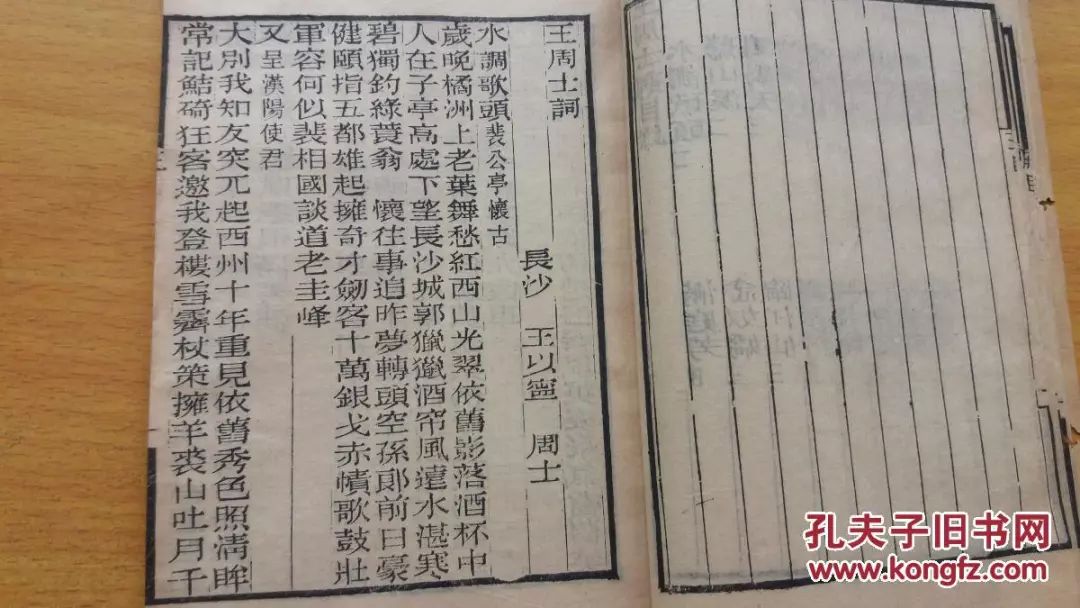 王周士詞
長沙　王以寧　周士
水調歌頭 裴公亭懷古
歲晚橘洲上老葉舞愁紅西山光翠依舊影落酒杯中
人在子亭高處下望長沙城郭獵獵酒帘風遠水湛寒
碧獨釣綠蓑翁　懷往事追昨夢轉頭空孫郎前日豪
健頤指五都雄起擁奇才劒客十萬銀戈赤幘歌鼓壯
軍容何似裴相國談道老圭峰
又 呈漢陽使君
大別我知友突兀起西州十年重見依舊秀色照清眸
常記鮚碕狂客邀我登樓雪霽杖策擁羊裘山吐月千
孔夫子旧书网
www.kongfz.com